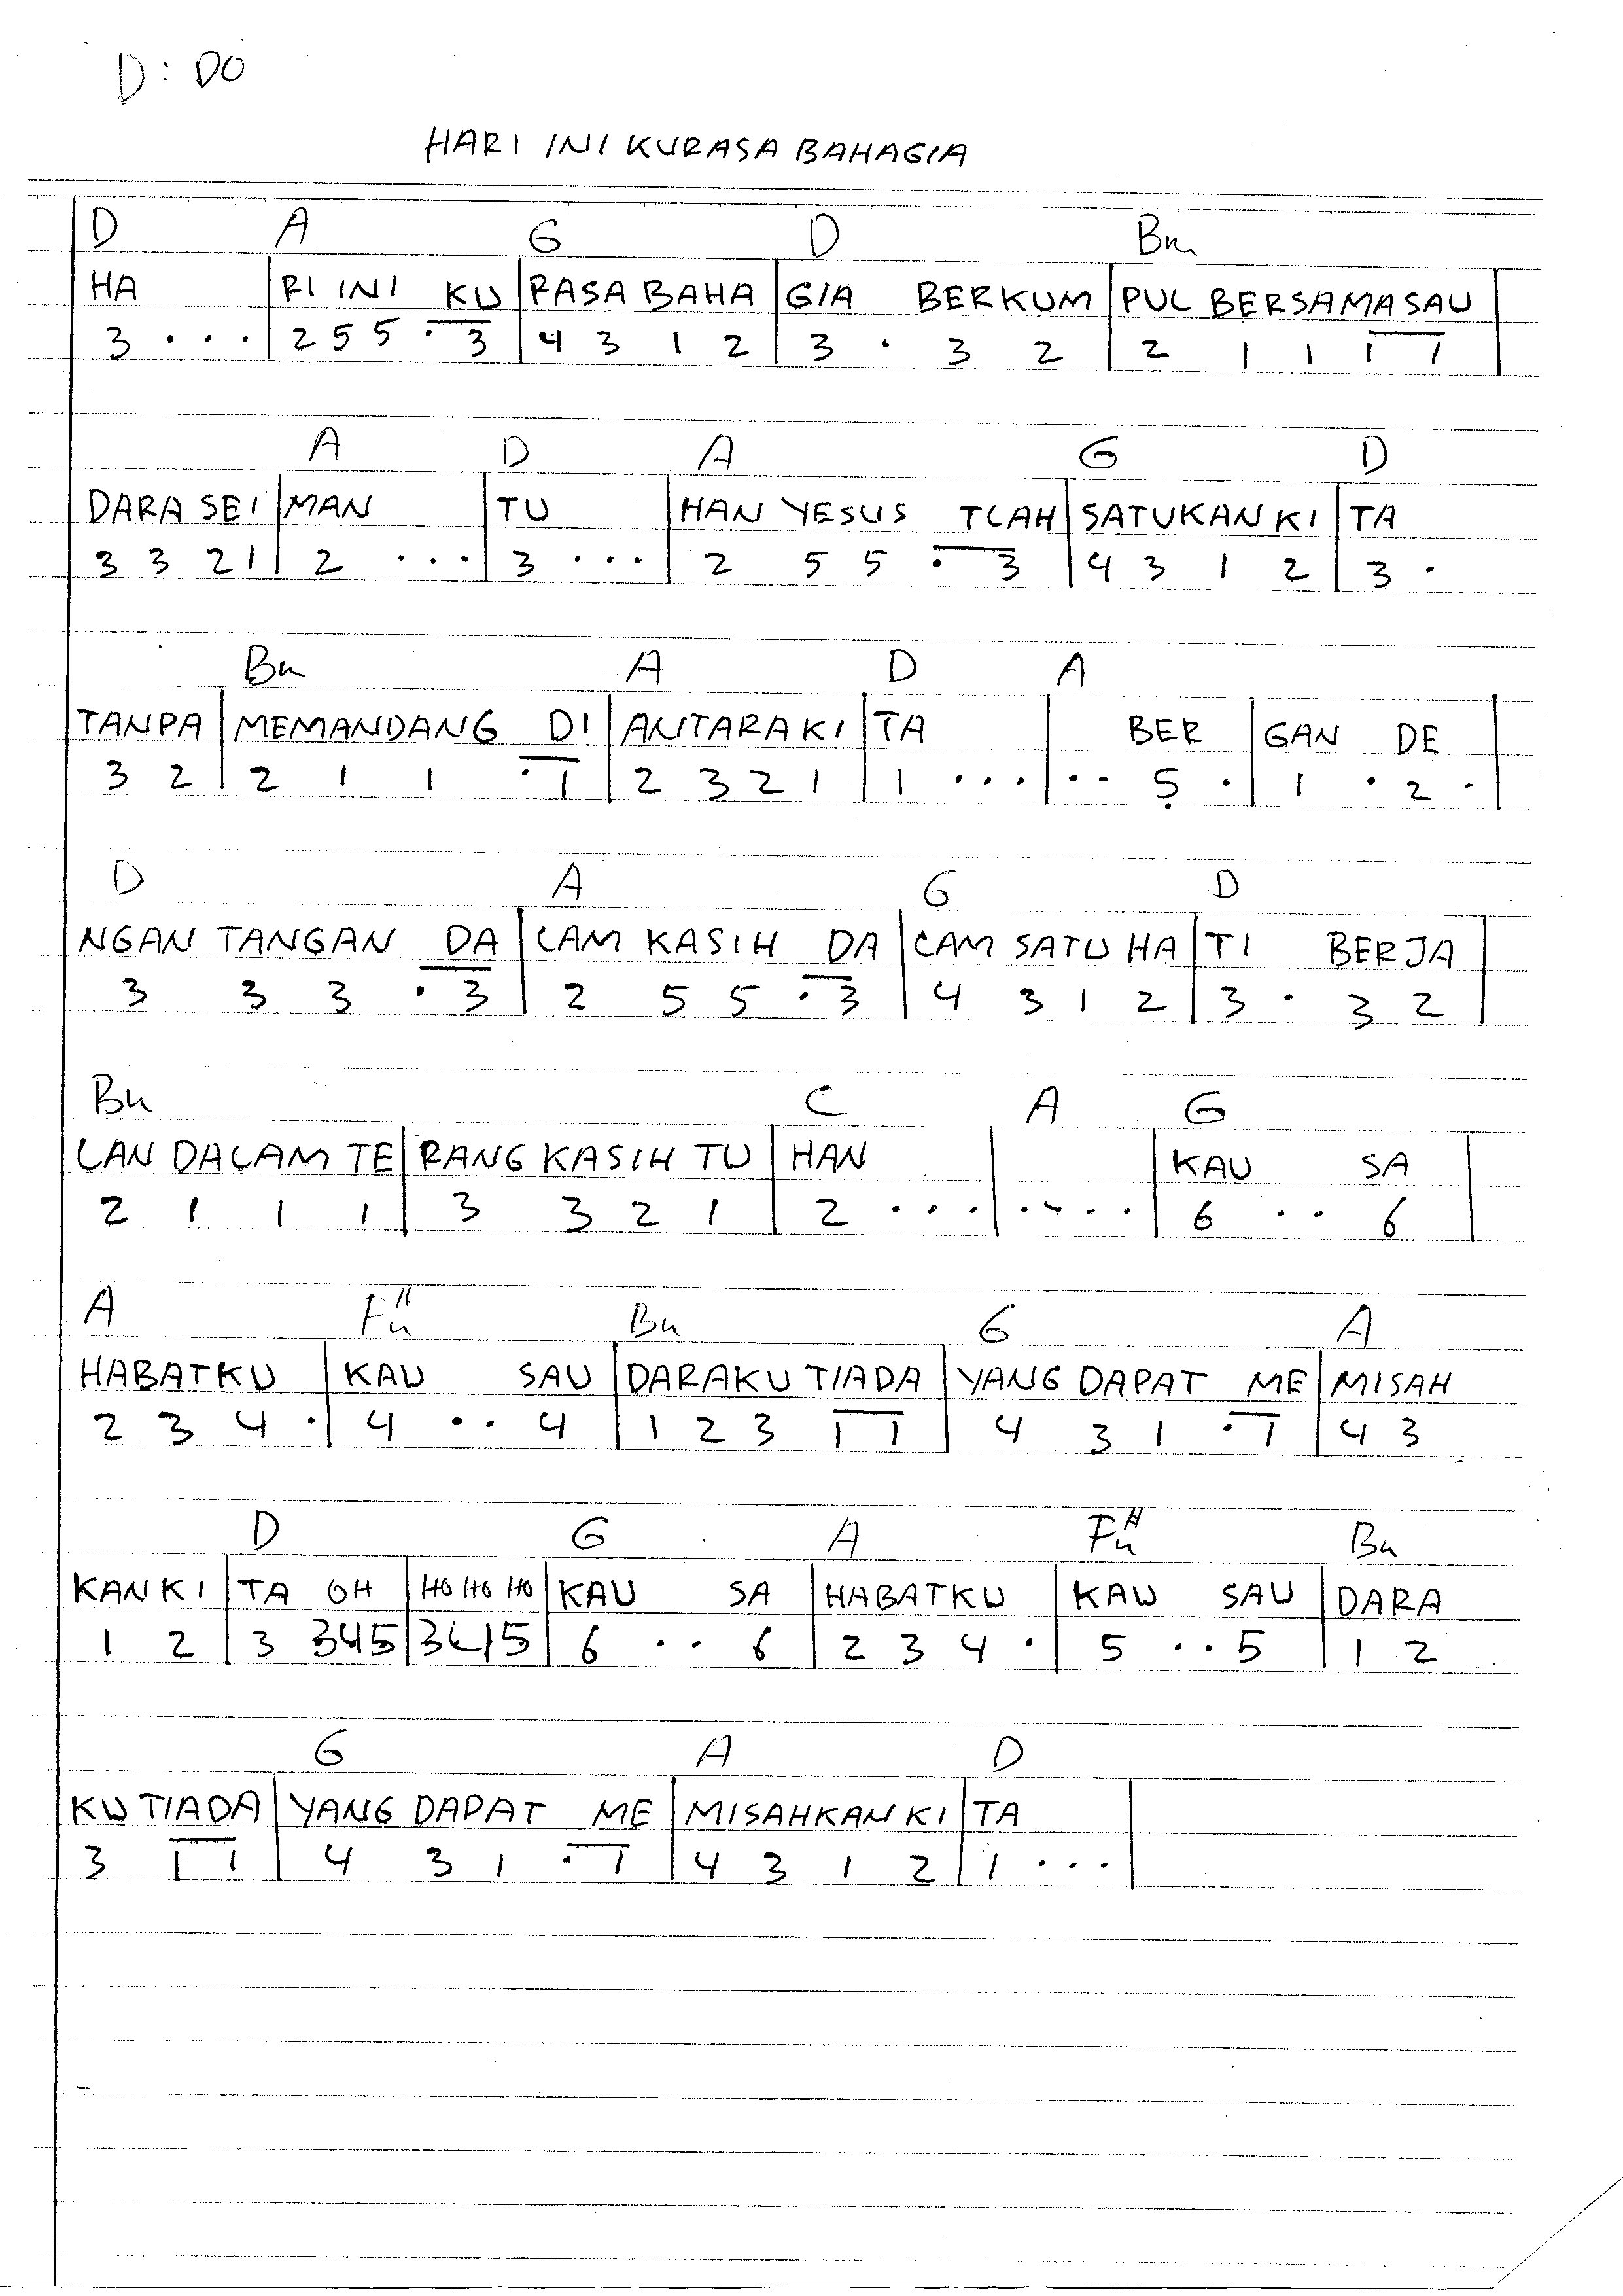 D : DO
HARI INI KURASA BAHAGIA
D A G D Bm
HA | RI INI KU | RASA BAHA | GIA BERKUM | PUL BERSAMA SAU |
3 . . . | 2 5 5 . 3 | 4 3 1 2 | 3 . 3 2 | 2 1 1 1 1 |
A D A G D
DARA SEI | MAN | TU | HAN YESUS TLAH | SATUKAN KI | TA
3 3 2 1 | 2 . . . | 3 . . . | 2 5 5 . 3 | 4 3 1 2 | 3 .
Bm A D A
TANPA | MEMANDANG DI | ANTARA KI | TA | BER | GAN DE |
3 2 | 2 1 1 . 1 | 2 3 2 1 | 1 . . . | . . 5̣ . | 1 . 2 . |
D A G D
NGAN TANGAN DA | LAM KASIH DA | LAM SATU HA | TI BERJA |
3 3 3 . 3 | 2 5 5 . 3 | 4 3 1 2 | 3 . 3 2 |
Bm C A G
LAN DALAM TE | RANG KASIH TU | HAN | | KAU SA |
2 1 1 1 | 3 3 2 1 | 2 . . . | . . . . | 6 . . 6 |
A F#m Bm G A
HABATKU | KAU SAU | DARAKU TIADA | YANG DAPAT ME | MISAH
2 3 4 . | 4 . . 4 | 1 2 3 1 1 | 4 3 1 . 1 | 4 3
D G A F#m Bm
KAN KI | TA OH | HO HO HO | KAU SA | HABATKU | KAU SAU | DARA
1 2 | 3 345 | 345 | 6 . . 6 | 2 3 4 . | 5 . . 5 | 1 2
G A D
KU TIADA | YANG DAPAT ME | MISAHKAN KI | TA |
3 1 1 | 4 3 1 . 1 | 4 3 1 2 | 1 . . . |